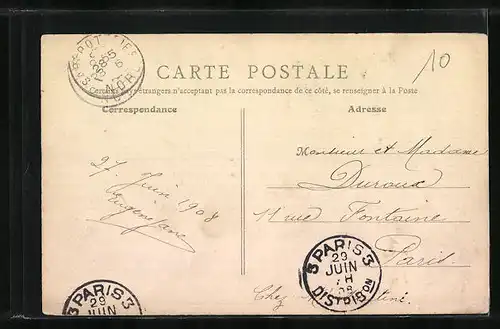 10
CARTE POSTALE
Certains pays étrangers n'acceptant pas la correspondance de ce côté, se renseigner à la Poste
Correspondance
Adresse
27 Juin 1908
Monsieur et Madame
Duroux
11 rue Fontaine
Paris
Chez
PARIS 3
29
JUIN
DISTRIBON
3 PARIS 3
29
JUIN